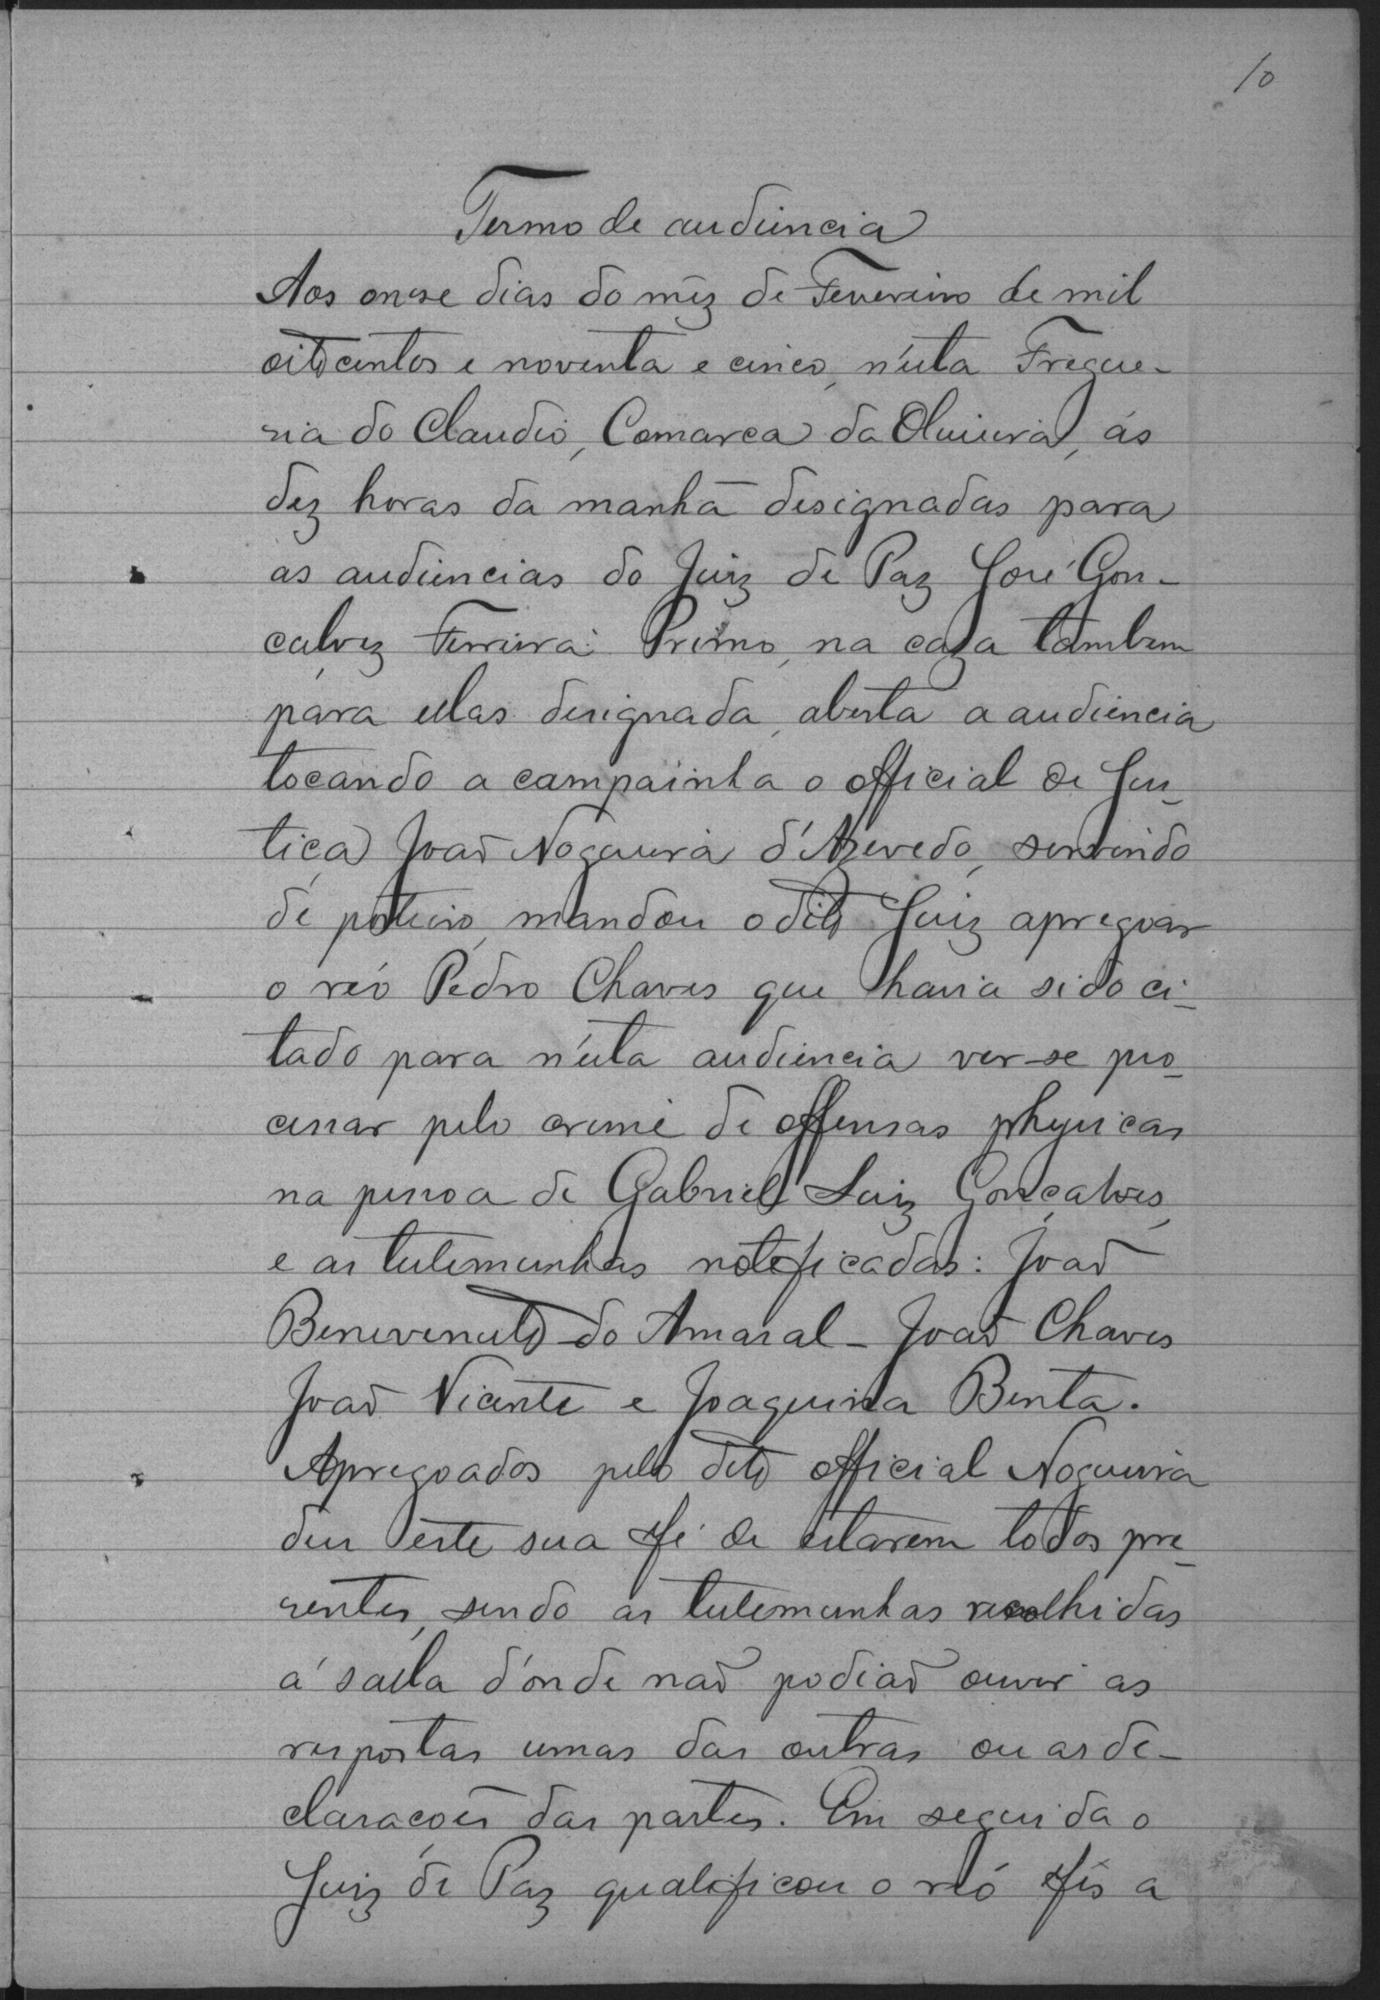 10
Termo de audiencia
Aos onse dias do mêz de Fevereiro de mil
oitocentos e noventa e cinco, n'esta Fregue-
sia do Claudio, Comarca da Oliveira, ás
dez horas da manhã designadas para
as audiencias do Juiz de Paz José Gon-
çalvez Ferreira Primo, na caza tambem
para ellas designada, aberta a audiencia
tocando a campainha o official de Jus-
tiça João Nogueira d'Azevedo, servindo
de porteiro, mandou o dito Juiz apregoar
o réo Pedro Chaves que havia sido ci-
tado para n'esta audiencia ver-se pro-
cessar pelo crime de offensas physicas
na pessoa de Gabriel Luiz Gonçalves,
e as testemunhas noteficadas: João
Benevenuto do Amaral - João Chaves
João Vicente e Joaquina Benta.
Apregoados pelo dito official Nogueira
deu este sua fé de estarem todos pre-
sentes, sendo as testemunhas recolhidas
á salla d'onde não podião ouvir as
respostas umas das outras ou as de-
clarações das partes. Em seguida o
Juiz de Paz qualificou o réo fês a